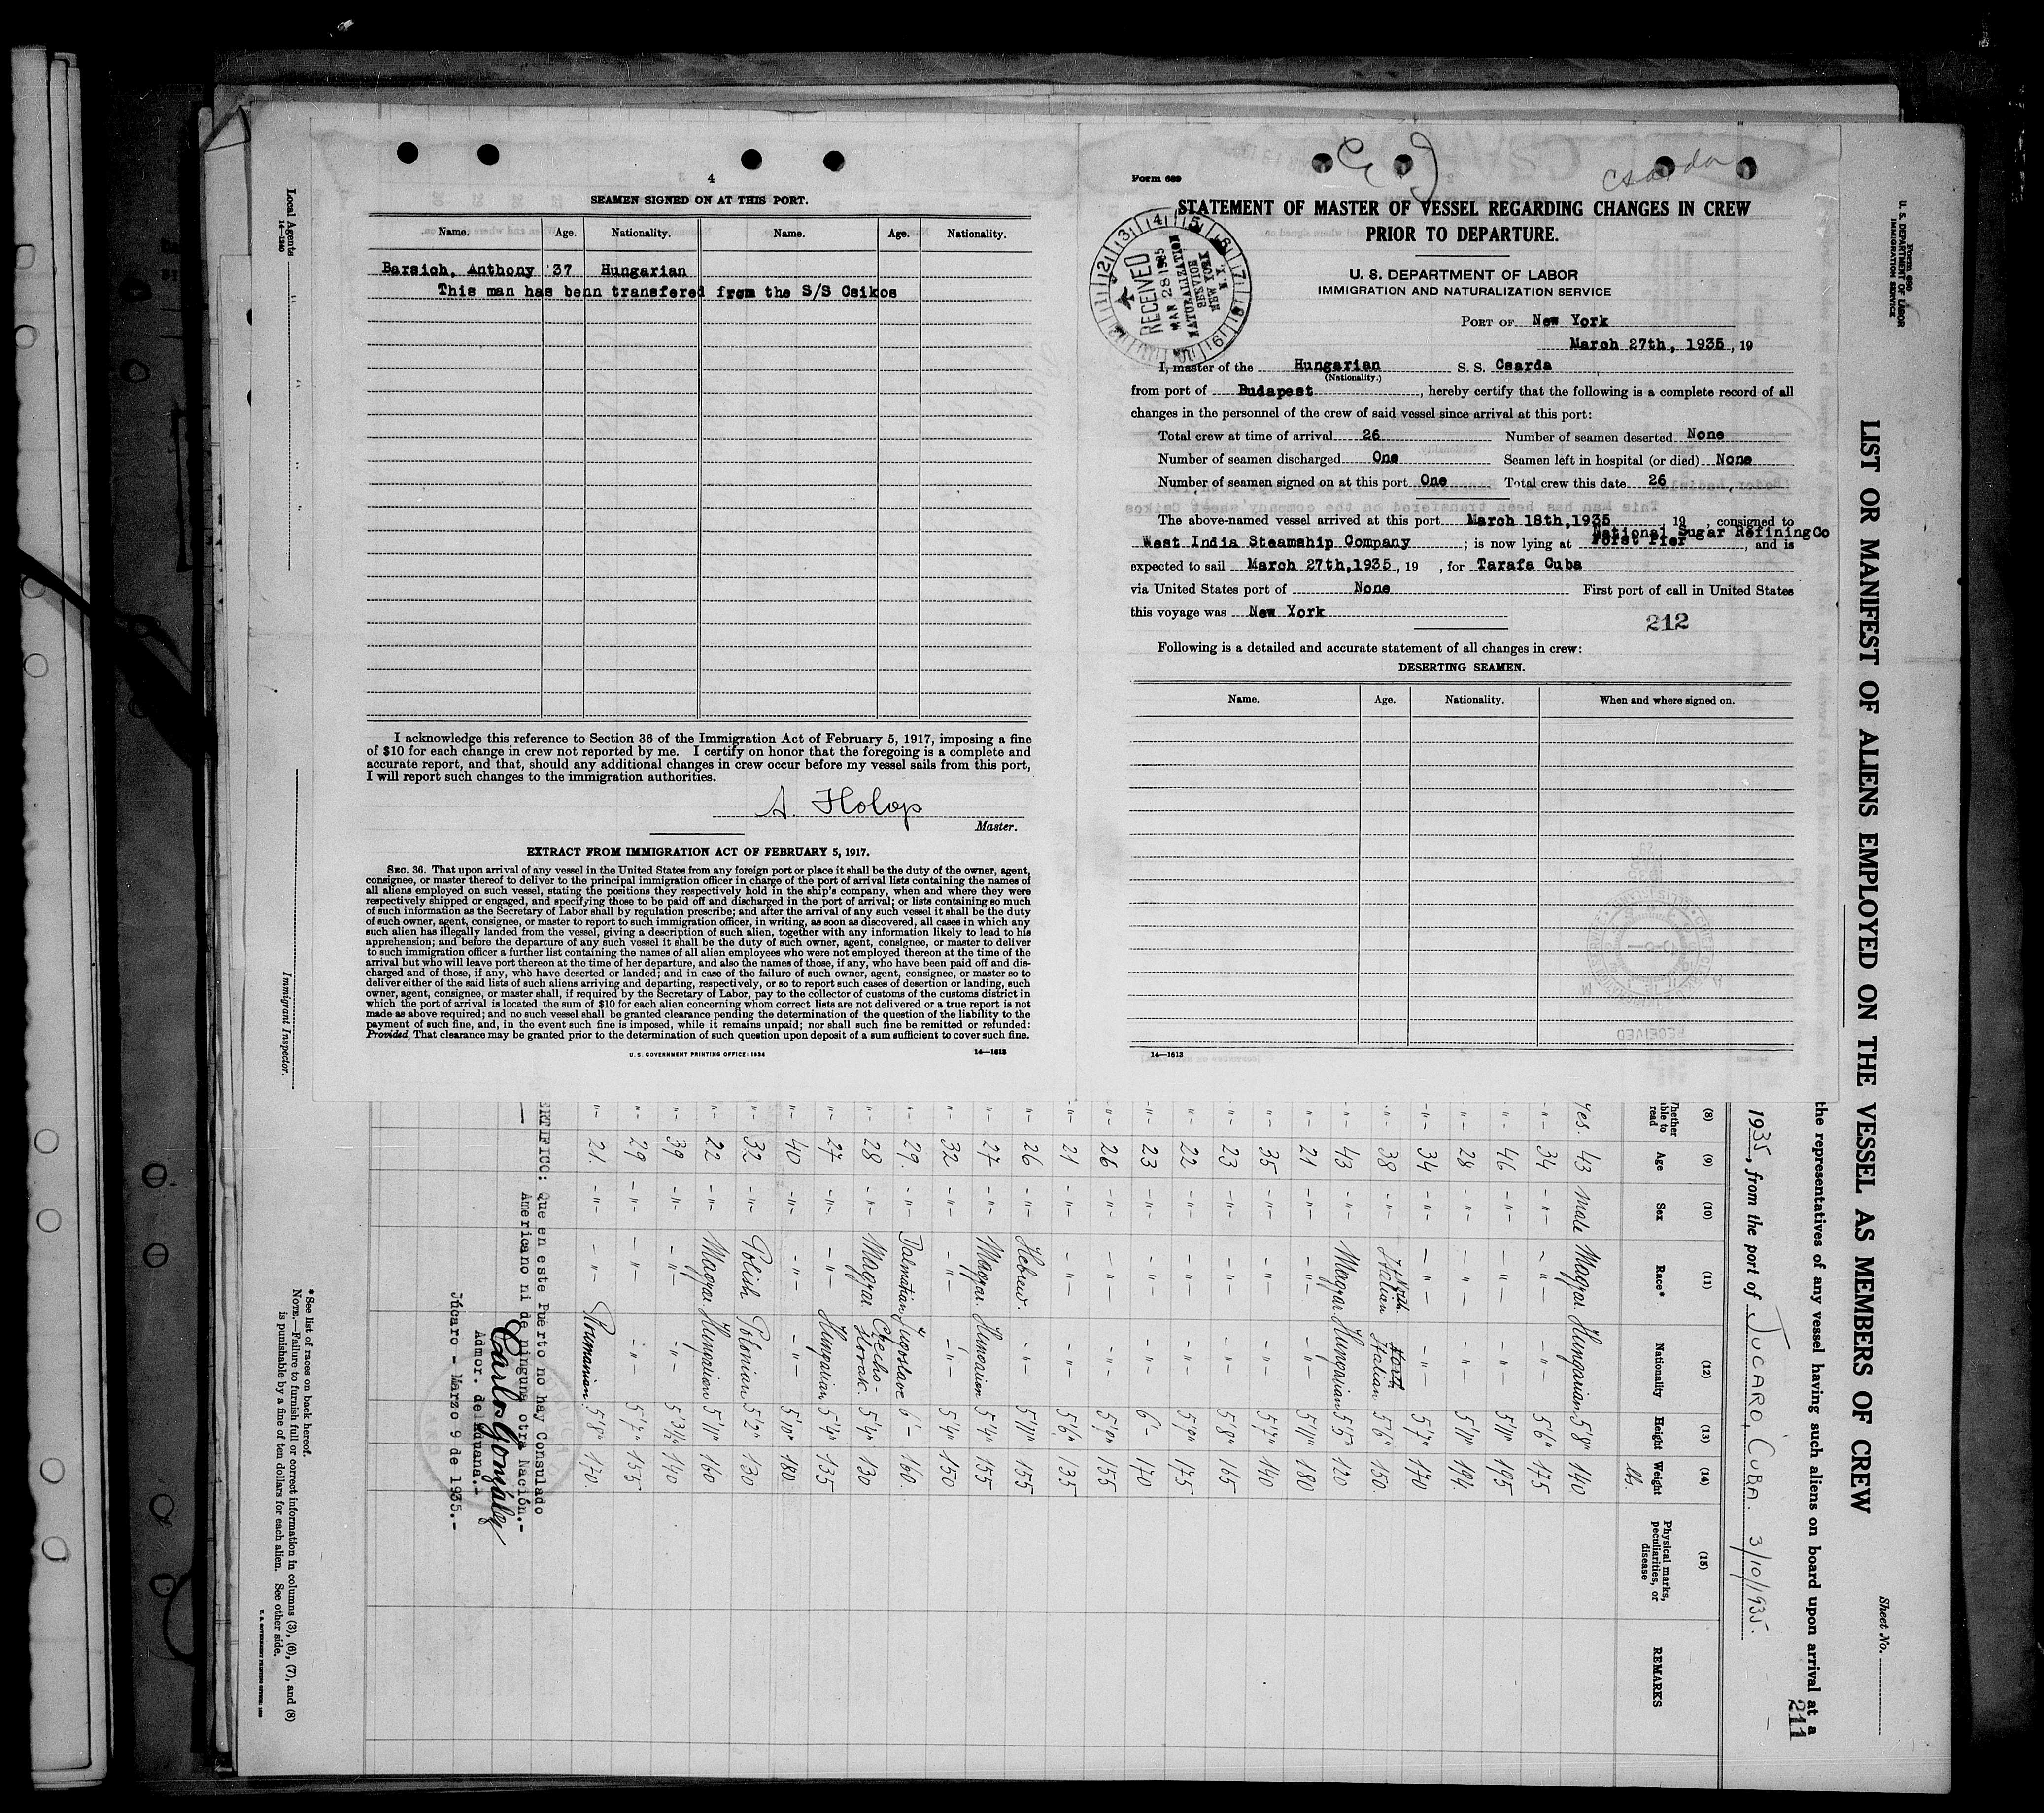 4
SEAMEN SIGNED ON AT THIS PORT.
Name. Age. Nationality. Name. Age. Nationality.
Barsich, Anthony 37 Hungarian
This man has benn transfered from the S/S Csikos
I acknowledge this reference to Section 36 of the Immigration Act of February 5, 1917, imposing a fine
of $10 for each change in crew not reported by me. I certify on honor that the foregoing is a complete and
accurate report, and that, should any additional changes in crew occur before my vessel sails from this port,
I will report such changes to the immigration authorities.
A. Holop
Master.
EXTRACT FROM IMMIGRATION ACT OF FEBRUARY 5, 1917.
SEC. 36. That upon arrival of any vessel in the United States from any foreign port or place it shall be the duty of the owner, agent,
consignee, or master thereof to deliver to the principal immigration officer in charge of the port of arrival lists containing the names of
all aliens employed on such vessel, stating the positions they respectively hold in the ship's company, when and where they were
respectively shipped or engaged, and specifying those to be paid off and discharged in the port of arrival; or lists containing so much
of such information as the Secretary of Labor shall by regulation prescribe; and after the arrival of any such vessel it shall be the duty
of such owner, agent, consignee, or master to report to such immigration officer, in writing, as soon as discovered, all cases in which any
such alien has illegally landed from the vessel, giving a description of such alien, together with any information likely to lead to his
apprehension; and before the departure of any such vessel it shall be the duty of such owner, agent, consignee, or master to deliver
to such immigration officer a further list containing the names of all alien employees who were not employed thereon at the time of the
arrival but who will leave port thereon at the time of her departure, and also the names of those, if any, who have been paid off and dis-
charged and of those, if any, who have deserted or landed; and in case of the failure of such owner, agent, consignee, or master so to
deliver either of the said lists of such aliens arriving and departing, respectively, or so to report such cases of desertion or landing, such
owner, agent, consignee, or master shall, if required by the Secretary of Labor, pay to the collector of customs of the customs district in
which the port of arrival is located the sum of $10 for each alien concerning whom correct lists are not delivered or a true report is not
made as above required; and no such vessel shall be granted clearance pending the determination of the question of the liability to the
payment of such fine, and, in the event such fine is imposed, while it remains unpaid; nor shall such fine be remitted or refunded:
Provided, That clearance may be granted prior to the determination of such question upon deposit of a sum sufficient to cover such fine.
U. S. GOVERNMENT PRINTING OFFICE: 1934 14—1613
Csarda
Form 689
STATEMENT OF MASTER OF VESSEL REGARDING CHANGES IN CREW
PRIOR TO DEPARTURE.
U. S. DEPARTMENT OF LABOR
IMMIGRATION AND NATURALIZATION SERVICE
RECEIVED
MAR 28 1935
NATURALIZATION
SERVICE
NEW YORK
N. Y.
PORT OF New York
March 27th, 1935, 19
I, master of the Hungarian S. S. Csarda
(Nationality.)
from port of Budapest, hereby certify that the following is a complete record of all
changes in the personnel of the crew of said vessel since arrival at this port:
Total crew at time of arrival 26 Number of seamen deserted None
Number of seamen discharged One Seamen left in hospital (or died) None
Number of seamen signed on at this port One Total crew this date 26
The above-named vessel arrived at this port March 18th,1935, 19 , consigned to
National Sugar Refining Co
West India Steamship Company; is now lying at Pier, and is
expected to sail March 27th,1935, 19 , for Tarafa Cuba
via United States port of None First port of call in United States
this voyage was New York
212
Following is a detailed and accurate statement of all changes in crew:
DESERTING SEAMEN.
Name. Age. Nationality. When and where signed on.
14—1613
Form 680
U. S. DEPARTMENT OF LABOR
IMMIGRATION SERVICE
LIST OR MANIFEST OF ALIENS EMPLOYED ON THE VESSEL AS MEMBERS OF CREW
Sheet No.
the representatives of any vessel having such aliens on board upon arrival at a
211
1935, from the port of JUCARO, CUBA. 3/10/1935.
(8) (9) (10) (11) (12) (13) (14) (15)
Whether able to read Age Sex Race* Nationality Height Weight Physical marks, peculiarities, or disease REMARKS
lbs.
yes. 43 male Magyar. Hungarian 5'8" 140
-"- 34 -"- -"- -"- 5'6" 175
-"- 46 -"- -"- -"- 5'11" 195
-"- 28 -"- -"- -"- 5'11" 194
-"- 34 -"- -"- -"- 5'7" 170
-"- 38 -"- North. Italian North Italian 5'6" 150
-"- 43 -"- Magyar Hungarian 5'5" 120
-"- 21 -"- -"- -"- 5'11" 180
-"- 35 -"- -"- -"- 5'7" 140
-"- 23 -"- -"- -"- 5'8" 165
-"- 22 -"- -"- -"- 5'9" 175
-"- 23 -"- -"- -"- 6'- 170
-"- 26 -"- -"- -"- 5'9" 155
-"- 21 -"- -"- -"- 5'6" 135
-"- 26 -"- Hebrew. -"- 5'11" 155
-"- 27 -"- Magyar. Hungarian 5'4" 155
-"- 32 -"- -"- -"- 5'4" 150
-"- 29. -"- Dalmatian Jugoslave 6'- 160.
-"- 28 -"- Magyar. Checho-Slovak. 5'4" 130
-"- 27 -"- -"- Hungarian 5'4" 135
-"- 40 -"- -"- -"- 5'10" 180
-"- 32 -"- Polish Polonian 5'2" 130
-"- 22 -"- Magyar Hungarian 5'11" 160
-"- 39 -"- -"- -"- 5'3½" 140
-"- 29 -"- -"- -"- 5'7" 135
-"- 21. -"- -"- Roumanian. 5'8" 170.
CERTIFICO: Que en este Puerto no hay Consulado
Americano ni de ninguna otra Nación.-
Carlos González
Admor. de Aduana.-
Júcaro - Marzo 9 de 1935.-
*See list of races on back hereof.
NOTE.—Failure to furnish full or correct information in columns (3), (6), (7), and (8)
is punishable by a fine of ten dollars for each alien. See other side.
Local Agents
14—1240
Immigrant Inspector.